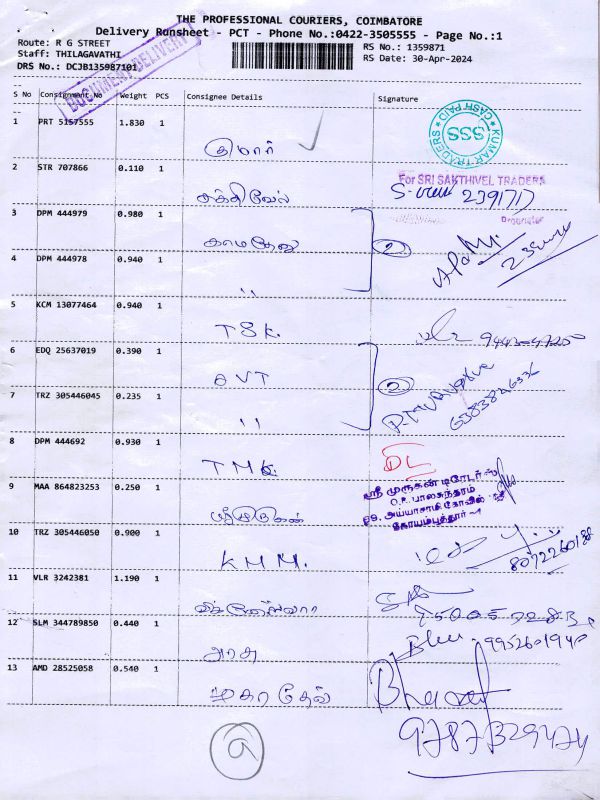 THE PROFESSIONAL COURIERS, COIMBATORE
Delivery Runsheet - PCT - Phone No.:0422-3505555 - Page No.:1
Route: R G STREET
Staff: THILAGAVATHI
DRS No.: DCJB135987101
RS No.: 1359871
RS Date: 30-Apr-2024
DOCUMENT DELIVERY
S No Consignment No Weight PCS Consignee Details Signature
1 PRT 5157555 1.830 1 குமார்
KUMAR TRADERS
SSS
CASH PAID
2 STR 707866 0.110 1 சக்திவேல்
For SRI SAKTHIVEL TRADERS
2391717
Proprietor
3 DPM 444979 0.980 1 காமதேனு 2
4 DPM 444978 0.940 1 "
5 KCM 13077464 0.940 1 TSK.
6 EDQ 25637019 0.390 1 BVT 2
7 TRZ 305446045 0.235 1 "
8 DPM 444692 0.930 1 TMK. DL
9 MAA 864823253 0.250 1 ஸ்ரீமுருகன்
ஸ்ரீ முருகன் டிரேடர்ஸ்
O.P. பாலசுந்தரம்
அய்யாசாமி கோவில்
கோயம்புத்தூர்-1
10 TRZ 305446050 0.900 1 KMM.
11 VLR 3242381 1.190 1 விக்னேஷ்வரா
12 SLM 344789850 0.440 1 அரசு
9952601940
13 AMD 28525058 0.540 1 மகாதேவ் Bharat
9787329474